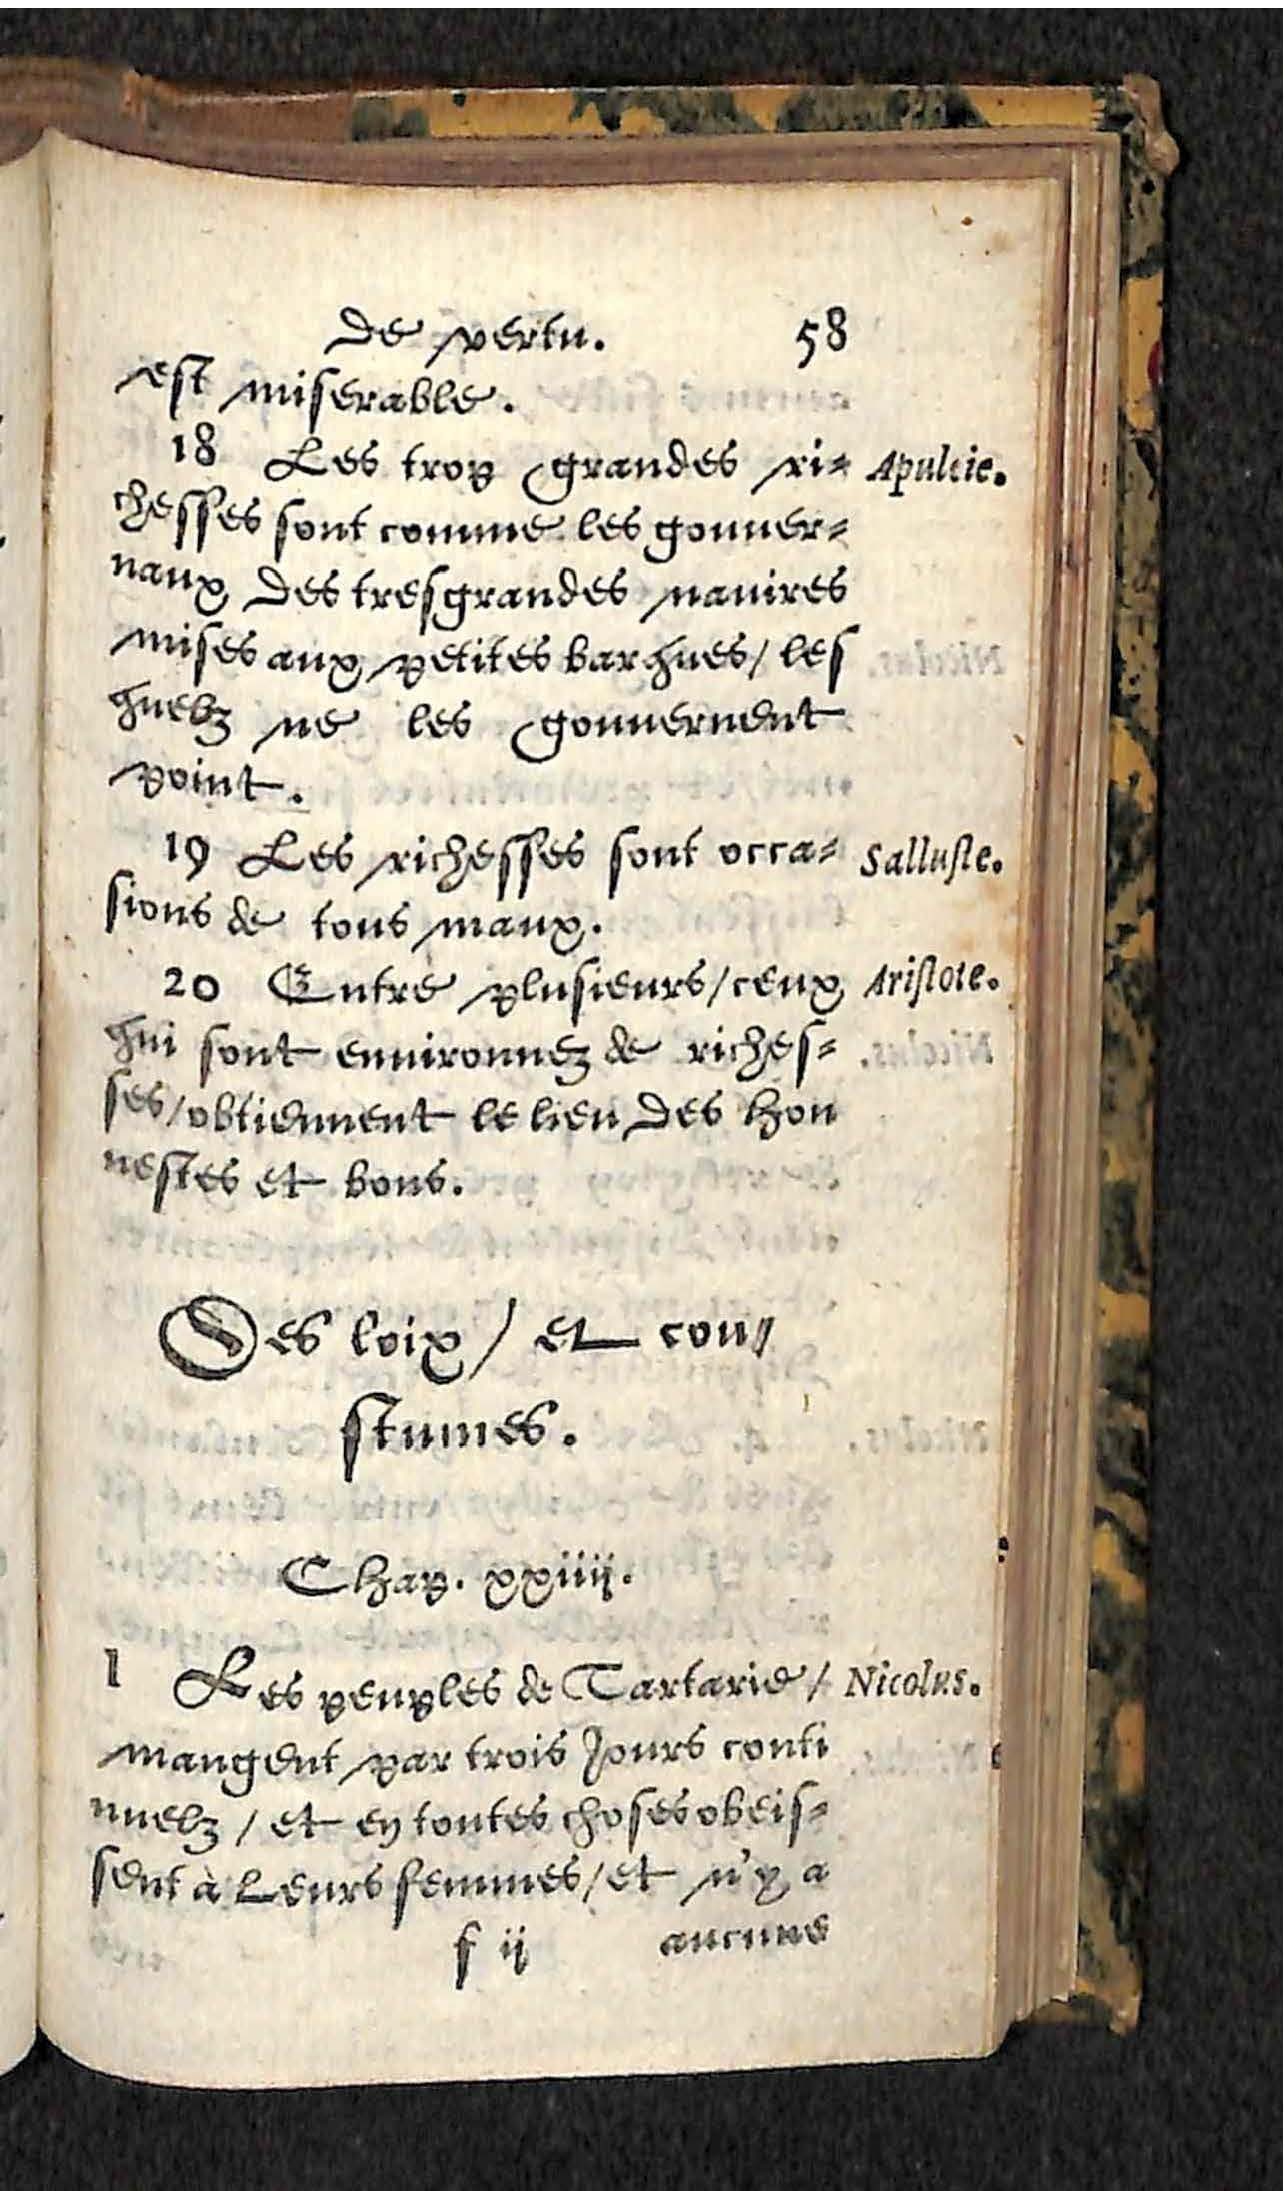 de vertu. 58
est miserable.
18 Les trop grandes ri= Apuleie.
chesses sont comme les gouuer=
naux des tresgrandes nauires
mises aux petites barques/ les
quelz ne les gouuernent
point.
19 Les richesses sont occa= Salluste.
sions de tous maux.
20 Entre plusieurs/ ceux Aristote.
qui sont enuironnez de riches=
ses/ obtiennent le lieu des hon
nestes et bons.
Des loix/ et cou=
stumes.
Chap. xxiiij.
1 Les peuples de Tartarie/ Nicolus.
mangent par trois Jours conti
nuelz/ et en toutes choses obeis=
sent à Leurs femmes/ et n'y a
f ij aucune